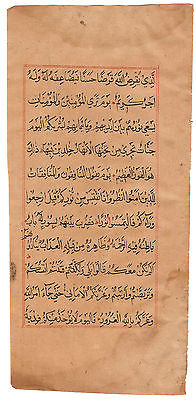 لَّذِي يُقْرِضُ اللَّهَ قَرْضًا حَسَنًا فَيُضَاعِفَهُ لَهُ وَلَهُ
أَجْرٌ كَرِيمٌ يَوْمَ تَرَى الْمُؤْمِنِينَ وَالْمُؤْمِنَاتِ
يَسْعَى نُورُهُمْ بَيْنَ أَيْدِيهِمْ وَبِأَيْمَانِهِمْ بُشْرَاكُمُ الْيَوْمَ
جَنَّاتٌ تَجْرِي مِنْ تَحْتِهَا الْأَنْهَارُ خَالِدِينَ فِيهَا ذَلِكَ
هُوَ الْفَوْزُ الْعَظِيمُ يَوْمَ يَقُولُ الْمُنَافِقُونَ وَالْمُنَافِقَاتُ
لِلَّذِينَ آمَنُوا انْظُرُونَا نَقْتَبِسْ مِنْ نُورِكُمْ قِيلَ ارْجِعُوا
وَرَاءَكُمْ فَالْتَمِسُوا نُورًا فَضُرِبَ بَيْنَهُمْ بِسُورٍ لَهُ بَابٌ
بَاطِنُهُ فِيهِ الرَّحْمَةُ وَظَاهِرُهُ مِنْ قِبَلِهِ الْعَذَابُ
أَلَمْ نَكُنْ مَعَكُمْ قَالُوا بَلَى وَلَكِنَّكُمْ فَتَنْتُمْ أَنْفُسَكُمْ
وَتَرَبَّصْتُمْ وَارْتَبْتُمْ وَغَرَّتْكُمُ الْأَمَانِيُّ حَتَّى جَاءَ أَمْرُ اللَّهِ
وَغَرَّكُمْ بِاللَّهِ الْغَرُورُ فَالْيَوْمَ لَا يُؤْخَذُ مِنْكُمْ فِدْيَةٌ